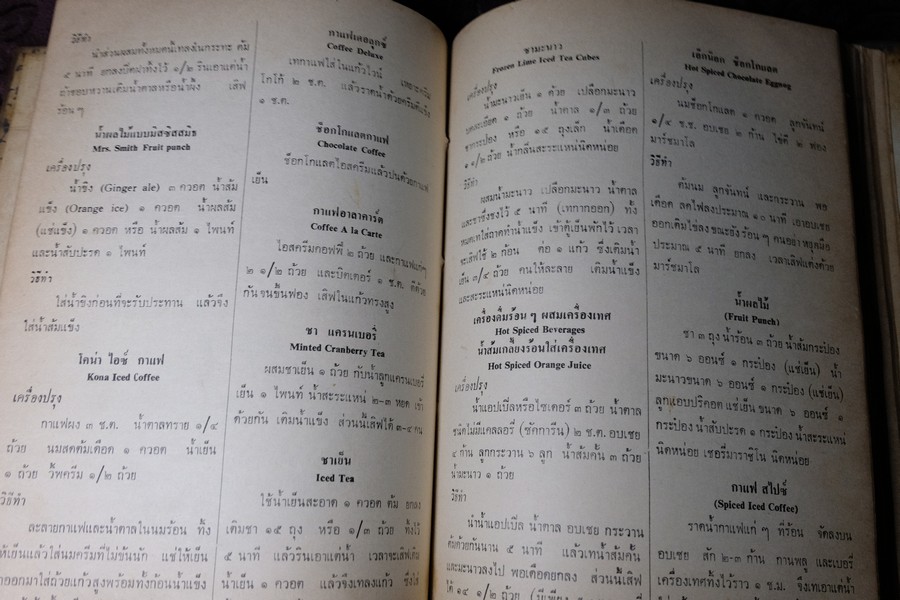 วิธีทำ
นำส่วนผสมทั้งหมดนี้เทลงในกระทะ ต้ม
๕ นาที ยกลงปิดฝาทิ้งไว้ ๑/๒ รินเอาแต่น้ำ
ถ้าชอบหวานเติมน้ำตาลหรือน้ำผึ้ง เสิฟ
ร้อนๆ
น้ำผลไม้แบบมิสซิสสมิธ
Mrs. Smith Fruit punch
เครื่องปรุง
น้ำขิง (Ginger ale) ๓ ควอต น้ำส้ม
แข็ง (Orange ice) ๑ ควอต น้ำผลส้ม
(แช่แข็ง) ๑ ควอต หรือ น้ำผลส้ม ๑ ไพนท์
และน้ำสับปะรด ๑ ไพนท์
วิธีทำ
ใส่น้ำขิงก่อนที่จะรับประทาน แล้วจึง
ใส่น้ำส้มแข็ง
โคน่า ไอซ์ กาแฟ
Kona Iced Coffee
เครื่องปรุง
กาแฟผง ๓ ช.ต. น้ำตาลทราย ๑/๔
ถ้วย นมสดต้มเดือด ๑ ควอต น้ำเย็น
๑ ถ้วย วิ้พครีม ๑/๒ ถ้วย
วิธีทำ
ละลายกาแฟและน้ำตาลในนมร้อน ทิ้ง
ให้เย็นแล้วใส่นมครีมที่ไม่ข้นนัก แช่ให้เย็น
ออกมาใส่ถ้วยแก้วสูงพร้อมทั้งก้อนน้ำแข็ง
กาแฟเดอลุกซ์
Coffee Deluxe
เทกาแฟใส่ในแก้วไวน์
โกโก้ ๒ ช.ต. แล้วราดน้ำด้วยครีมตีแข็ง
๑ ช.ต.
ช็อกโกแลตกาแฟ
Chocolate Coffee
ช็อกโกแลตไอสครีมแล้วปนด้วยกาแฟ
เย็น
กาแฟอาลาคาร์ต
Coffee A la Carte
ไอสครีมคอฟฟี่ ๒ ถ้วย และกาแฟแก่ๆ
๒ ๑/๒ ถ้วย และบิตเตอร์ ๑ ช.ต. ตีด้วย
กันจนขึ้นฟอง เสิฟในแก้วทรงสูง
ชา แครนเบอรี่
Minted Cranberry Tea
ผสมชาเย็น ๑ ถ้วย กับน้ำลูกแครนเบอรี่
เย็น ๑ ไพนท์ น้ำสะระแหน่ ๒-๓ หยด เข้า
ด้วยกัน เติมน้ำแข็ง ส่วนนี้เสิฟได้ ๓-๔ คน
ชาเย็น
Iced Tea
ใช้น้ำเย็นสะอาด ๑ ควอต ต้ม ยกลง
เติมชา ๑๕ ถุง หรือ ๑/๓ ถ้วย ทิ้งไว้
๕ นาที แล้วรินเอาแต่น้ำ เวลาจะเสฟเติม
น้ำเย็น ๑ ควอต แล้วจึงเทลงแก้ว ซึ่งใส่
ชามะนาว
Frozen Lime Iced Tea Cubes
เครื่องปรุง
น้ำมะนาวเย็น ๑ ถ้วย เปลือกมะนาว
บดละเอียด ๑ ถ้วย น้ำตาล ๑/๓ ถ้วย
ชากระป๋อง หรือ ๑๕ ถุงเล็ก น้ำเดือด
๑ ๑/๒ ถ้วย น้ำกลิ่นสะระแหน่นิดหน่อย
วิธีทำ
ผสมน้ำมะนาว เปลือกมะนาว น้ำตาล
และชาซึ่งชงไว้ ๕ นาที (เทกากออก) ทั้ง
หมดเทใส่ถาดทำน้ำแข็ง เข้าตู้เย็นพักไว้ เวลา
จะเสิฟใช้ ๒ ก้อน ต่อ ๑ แก้ว ซึ่งเติมน้ำ
เย็น ๓/๔ ถ้วย คนให้ละลาย เติมน้ำแข็ง
และสะระแหน่นิดหน่อย
เครื่องดื่มร้อนๆ ผสมเครื่องเทศ
Hot Spiced Beverages
น้ำส้มเกลี้ยงร้อนใส่เครื่องเทศ
Hot Spiced Orange Juice
เครื่องปรุง
น้ำแอปเปิลหรือไซเดอร์ ๓ ถ้วย น้ำตาล
ชนิดไม่มีแคลลอรี่ (ซักการีน) ๒ ช.ต. อบเชย
๔ ก้าน ลูกกระวาน ๖ ลูก น้ำส้มคั้น ๓ ถ้วย
น้ำมะนาว ๑ ถ้วย
วิธีทำ
นำน้ำแอปเปิล น้ำตาล อบเชย กระวาน
ต้มด้วยกันนาน ๕ นาที แล้วเทน้ำส้มคั้น
และมะนาวลงไป พอเดือดยกลง ส่วนนี้เสิฟ
ได้ ๑๔ ๑/๒ ถ้วย
เอ็กน็อก ช็อกโกแลต
Hot Spiced Chocolate Eggnog
เครื่องปรุง
นมช็อกโกแลต ๑ ควอต ลูกจันทน์
๑/๔ ช.ช. อบเชย ๒ ก้าน ไข่ตี ๒ ฟอง
มาร์ชมาโล
วิธีทำ
ต้มนม ลูกจันทน์ และกระวาน พอ
เดือด ลดไฟลงประมาณ ๑๐ นาที เอาอบเชย
ออกเติมไข่ลง ขณะยังร้อนๆ คนอย่าหยุดมือ
ประมาณ ๕ นาที ยกลง เวลาเสิฟแต่งด้วย
มาร์ชมาโล
น้ำผลไม้
(Fruit Punch)
ชา ๓ ถุง น้ำร้อน ๓ ถ้วย น้ำส้มกระป๋อง
ขนาด ๖ ออนซ์ ๑ กระป๋อง (แช่เย็น) น้ำ
มะนาวขนาด ๖ ออนซ์ ๑ กระป๋อง (แช่เย็น)
ลูกแอบปริคอต แช่เย็น ขนาด ๖ ออนซ์ ๑
กระป๋อง น้ำสับปะรด ๑ กระป๋อง น้ำสะระแหน่
นิดหน่อย เชอรี่มาราชิโน นิดหน่อย
กาแฟ สไปซ์
(Spiced Iced Coffee)
ราดน้ำกาแฟแก่ๆ ที่ร้อน จัดลงบน
อบเชย สัก ๒-๓ ก้าน กานพลู และ
เครื่องเทศทิ้งไว้ราว ๑ ช.ม. จึงเทเอาแต่น้ำ